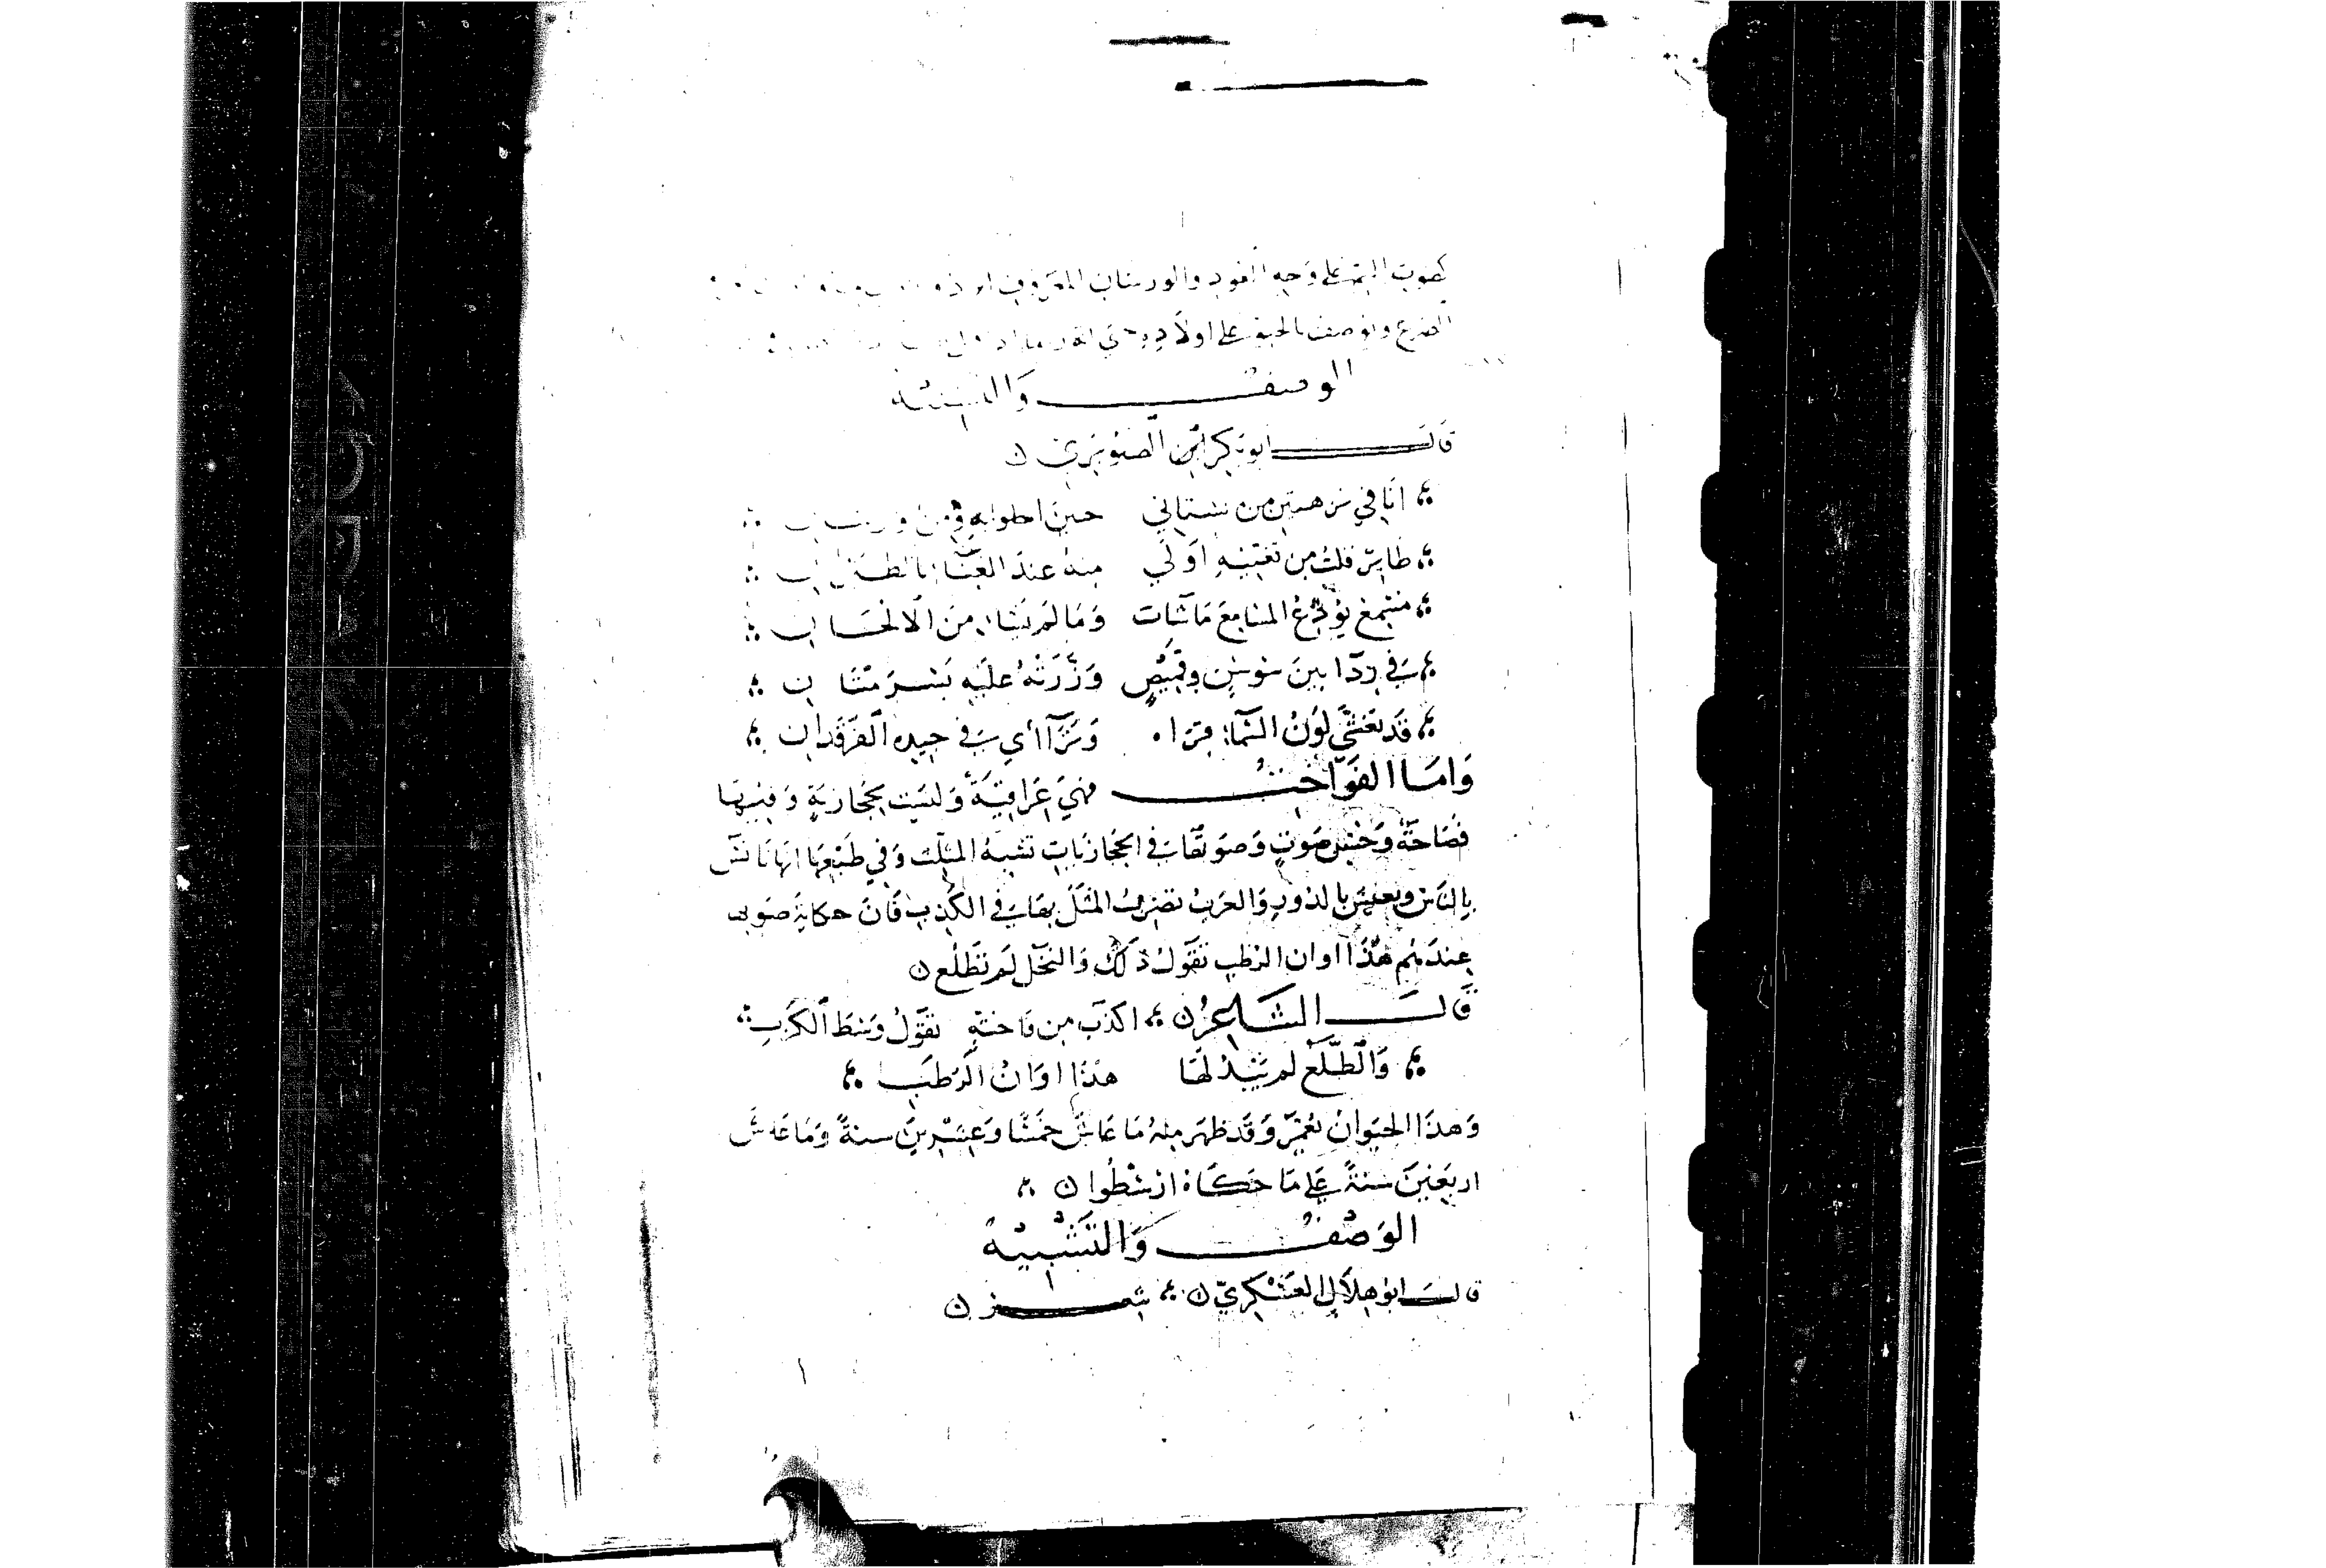 كصوت البم على وجه العود والورشان المعروف
الضرع ويوصف بالحنو على اولاده حتى انه
الوصف والتشبيه
قال ابو بكر ابن الصنوبري
انا في نزهتين من بستاني حين اخلو به
طاير قلت من تغنيه اولي منه عند الغناء بالطيران
مسمع يودع المسامع ما شات وما لم تشا من الالحان
في ردا بين سوسن وقميص وزرته عليه بسر متان
قد تغشى لون السما قراه وتراأى في جيده الفرقدان
واما الفواخت فهي عراقية وليست بحجازية وفيها
فصاحة وحسن صوت وصوتها في الحجازيات تشبه المثلث وفي طبعها انها تانس
بالناس ويعيش بالدور والعرب تضرب المثل بها في الكذب فان حكاية صوتها
عندهم هذا اوان الرطب تقول ذلك والنخل لم تطلع
قال الشاعر اكذب من فاختة تقول وسط الكرب
والطلع لم يبد لها هذا اوان الرطب
وهذا الحيوان يعمر وقد ظهر منه ما عاش خمسا وعشرين سنة وما عاش
اربعين سنة على ما حكاه ارسطوا
الوصف والتشبيه
قال ابو هلال العسكري شعر